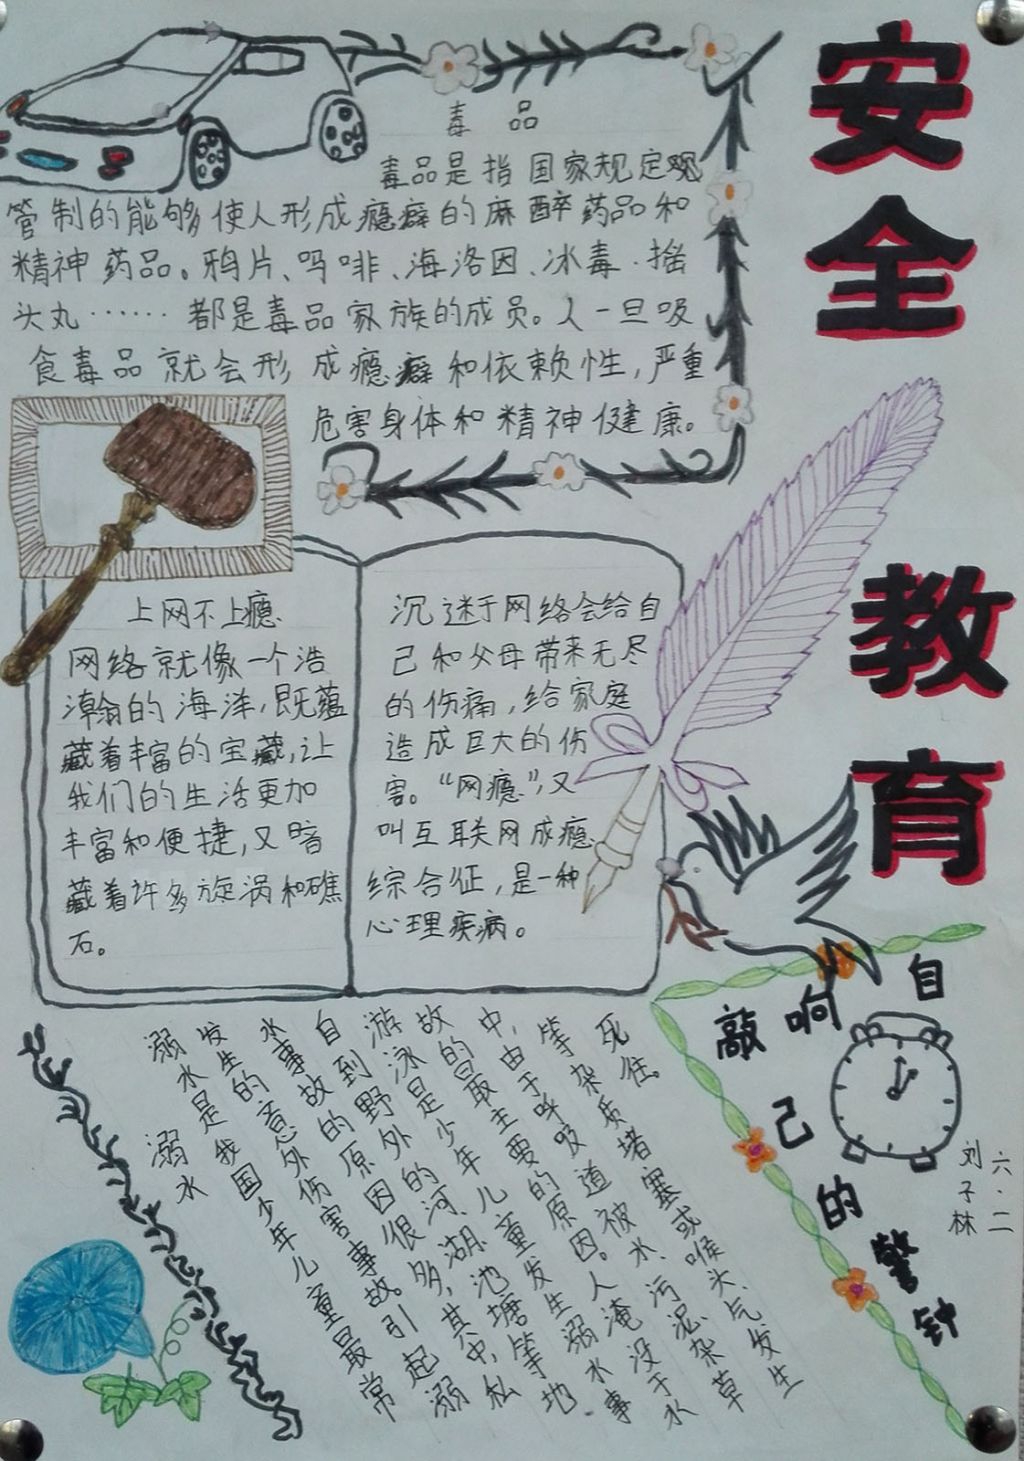 安全 教育
毒品
毒品是指国家规定观
管制的能够使人形成瘾癖的麻醉药品和
精神药品。鸦片、吗啡、海洛因、冰毒、摇
头丸……都是毒品家族的成员。人一旦吸
食毒品就会形成瘾癖和依赖性,严重
危害身体和精神健康。
上网不上瘾
网络就像一个浩
瀚的海洋,既蕴
藏着丰富的宝藏,让
我们的生活更加
丰富和便捷,又暗
藏着许多旋涡和礁
石。
沉迷于网络会给自
己和父母带来无尽
的伤痛,给家庭
造成巨大的伤
害。“网瘾”,又
叫互联网成瘾
综合征,是一种
心理疾病。
溺水
溺水是我国少年儿童最常
发生的意外伤害事故。引起溺
水事故的原因很多,其中,私
自到野外的河、湖、池塘等地
游泳是少年儿童发生溺水事
故的最主要的原因。人淹没于水
中,由于呼吸道被水、污泥、杂草
等杂质堵塞或喉头、气发生
死住。
敲响自
己的警钟
六.二
刘子林